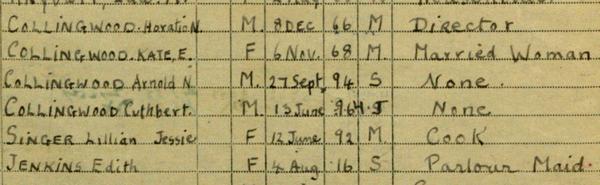 COLLINGWOOD. Horatio N. M. 8 DEC 66 M Director
COLLINGWOOD. KATE, E. F 6 Nov. 68 M. Married Woman
COLLINGWOOD Arnold N. M. 27 Sept, 94 S None.
COLLINGWOOD Cuthbert. M. 13 June None
SINGER Lillian Jessie F 12 June 92 M. Cook
JENKINS Edith F 4 Aug 16 S Parlour Maid.